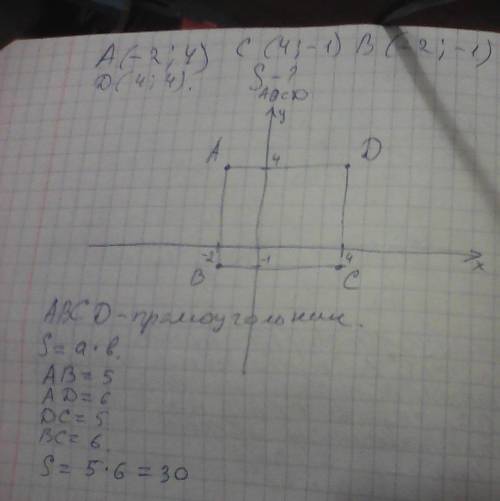 A(-2; 4) C(4; -1) B(-2; -1)
D(4; 4). S - ?
ABCD
y
A 4 D
-2 4 x
B -1 C
ABCD - прямоугольник.
S = a · b.
AB = 5
AD = 6
DC = 5
BC = 6.
S = 5 · 6 = 30